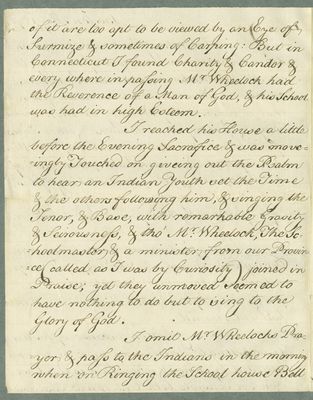 of it are too apt to be viewed by an Eye of
Surmize & sometimes of Carping: But in
Connecticut I found Charity & Candor &
every where in passing Mr. Wheelock had
the Reverence of a Man of God, & his School
was had in high Esteem.
I reached his House a little
before the Evening Sacrafice & was move-
ingly Touched on giveing out the Psalm
to hear an Indian Youth set the Time
& the others following him, & singing the
Tenor, & Base, with remarkable Gravity
& Seirowsness, & tho' Mr. Wheelock, The Sc-
hoolmaster & a minister from our Provin-
ce (called as I was by Curiosity) joined in
Praise; yet they unmoved seemed to
have nothing to do but to sing to the
Glory of God.
I omit Mr. Wheelocks Pra-
yer & pass to the Indians in the morning
when on Ringing the School house Bell